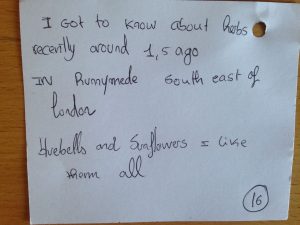 I Got to know about herbs
recently around 1,5 ago
IN Runnymede South east of
London
Bluebells and Sunflowers I like
them all
16